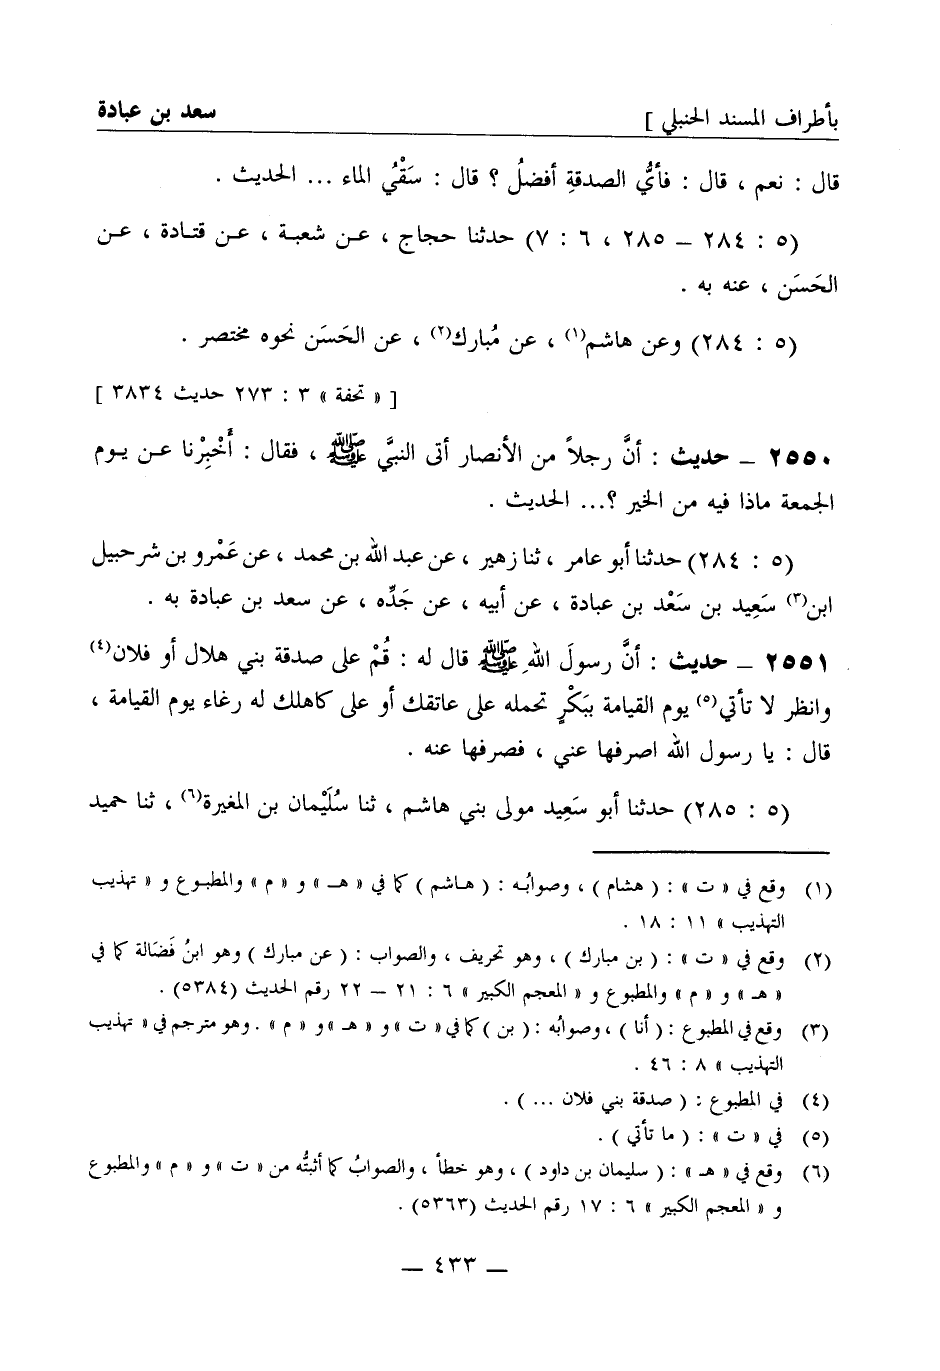 بأطراف المسند الحنبلي ] سعد بن عبادة
قال : نعم ، قال : فأيُّ الصدقةِ أفضلُ ؟ قال : سَقْيُ الماء ... الحديث .
(٥ : ٢٨٤ – ٢٨٥ ، ٦ : ٧) حدثنا حجاج ، عن شعبة ، عن قتادة ، عن
الحَسَن ، عنه به .
(٥ : ٢٨٤) وعن هاشم(١) ، عن مُبارك(٢) ، عن الحَسَن نحوه مختصر .
[ « تحفة » ٣ : ٢٧٣ حديث ٣٨٣٤ ]
٢٥٥٠ – حديث : أنَّ رجلاً من الأنصار أتى النبيَّ ﷺ ، فقال : أَخْبِرْنا عن يوم
الجمعة ماذا فيه من الخير ؟... الحديث .
(٥ : ٢٨٤) حدثنا أبو عامر ، ثنا زهير ، عن عبد الله بن محمد ، عن عَمْرو بن شرحبيل
ابن(٣) سَعِيد بن سَعْد بن عبادة ، عن أبيه ، عن جَدِّه ، عن سعد بن عبادة به .
٢٥٥١ – حديث : أنَّ رسولَ اللهِ ﷺ قال له : قُمْ على صدقة بني هلال أو فلان(٤)
وانظر لا تأتي(٥) يوم القيامة ببَكْرٍ تحمله على عاتقك أو على كاهلك له رغاء يوم القيامة ،
قال : يا رسول الله اصرفها عني ، فصرفها عنه .
(٥ : ٢٨٥) حدثنا أبو سَعِيد مولى بني هاشم ، ثنا سُلَيْمان بن المغيرة(٦) ، ثنا حميد
(١) وقع في « ت » : ( هشام ) ، وصوابُه : ( هاشم ) كما في « هـ » و « م » والمطبوع و « تهذيب
التهذيب » ١١ : ١٨ .
(٢) وقع في « ت » : ( بن مبارك ) ، وهو تحريف ، والصواب : ( عن مبارك ) وهو ابنُ فَضَالة كما في
« هـ » و « م » والمطبوع و « المعجم الكبير » ٦ : ٢١ – ٢٢ رقم الحديث (٥٣٨٤) .
(٣) وقع في المطبوع : ( أنا ) ، وصوابُه : ( بن ) كما في « ت » و « هـ » و « م » . وهو مترجم في « تهذيب
التهذيب » ٨ : ٤٦ .
(٤) في المطبوع : ( صدقة بني فلان ... ) .
(٥) في « ت » : ( ما تأتي ) .
(٦) وقع في « هـ » : ( سليمان بن داود ) ، وهو خطأ ، والصوابُ كما أثبتُّه من « ت » و « م » والمطبوع
و « المعجم الكبير » ٦ : ١٧ رقم الحديث (٥٣٦٣) .
– ٤٣٣ –